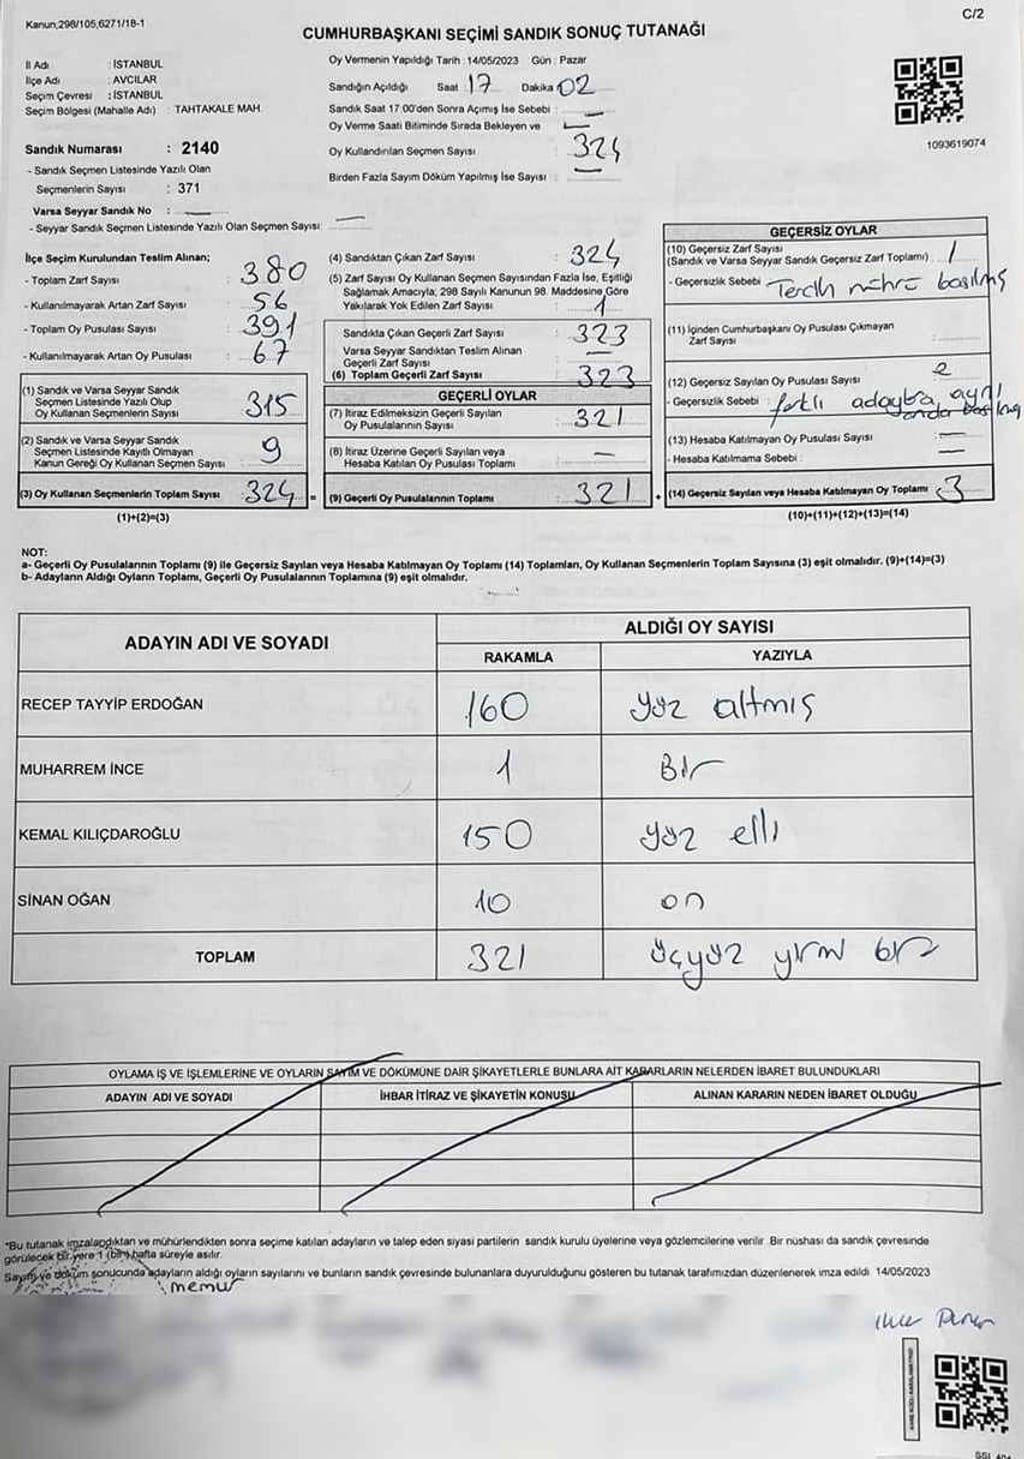 Kanun,298/105,6271/18-1
C/2
CUMHURBAŞKANI SEÇİMİ SANDIK SONUÇ TUTANAĞI
İl Adı : İSTANBUL
İlçe Adı : AVCILAR
Seçim Çevresi : İSTANBUL
Seçim Bölgesi (Mahalle Adı) : TAHTAKALE MAH.
Oy Vermenin Yapıldığı Tarih : 14/05/2023 Gün : Pazar
Sandığın Açıldığı Saat 17 Dakika 02
Sandık Saat 17:00'den Sonra Açımış İse Sebebi : —
Oy Verme Saati Bitiminde Sırada Bekleyen ve
Oy Kullandırılan Seçmen Sayısı : 324
Birden Fazla Sayım Döküm Yapılmış İse Sayısı : —
1093619074
Sandık Numarası : 2140
- Sandık Seçmen Listesinde Yazılı Olan
Seçmenlerin Sayısı : 371
Varsa Seyyar Sandık No : —
- Seyyar Sandık Seçmen Listesinde Yazılı Olan Seçmen Sayısı: —
İlçe Seçim Kurulundan Teslim Alınan;
- Toplam Zarf Sayısı : 380
- Kullanılmayarak Artan Zarf Sayısı : 56
- Toplam Oy Pusulası Sayısı : 391
- Kullanılmayarak Artan Oy Pusulası : 67
(1) Sandık ve Varsa Seyyar Sandık
Seçmen Listesinde Yazılı Olup
Oy Kullanan Seçmenlerin Sayısı : 315
(2) Sandık ve Varsa Seyyar Sandık
Seçmen Listesinde Kayıtlı Olmayan
Kanun Gereği Oy Kullanan Seçmen Sayısı : 9
(3) Oy Kullanan Seçmenlerin Toplam Sayısı : 324 =
(1)+(2)=(3)
(4) Sandıktan Çıkan Zarf Sayısı : 324
(5) Zarf Sayısı Oy Kullanan Seçmen Sayısından Fazla İse, Eşitliği
Sağlamak Amacıyla, 298 Sayılı Kanunun 98. Maddesine Göre
Yakılarak Yok Edilen Zarf Sayısı : 1
Sandıkta Çıkan Geçerli Zarf Sayısı : 323
Varsa Seyyar Sandıktan Teslim Alınan
Geçerli Zarf Sayısı : —
(6) Toplam Geçerli Zarf Sayısı : 323
GEÇERLİ OYLAR
(7) İtiraz Edilmeksizin Geçerli Sayılan
Oy Pusulalarının Sayısı : 321
(8) İtiraz Üzerine Geçerli Sayılan veya
Hesaba Katılan Oy Pusulası Toplamı : —
(9) Geçerli Oy Pusulalarının Toplamı : 321 +
GEÇERSİZ OYLAR
(10) Geçersiz Zarf Sayısı
(Sandık ve Varsa Seyyar Sandık Geçersiz Zarf Toplamı) : 1
- Geçersizlik Sebebi : Tercih mührü basılmış
(11) İçinden Cumhurbaşkanı Oy Pusulası Çıkmayan
Zarf Sayısı :
(12) Geçersiz Sayılan Oy Pusulası Sayısı : 2
- Geçersizlik Sebebi : farklı adaylara ayrı
(13) Hesaba Katılmayan Oy Pusulası Sayısı : —
- Hesaba Katılmama Sebebi : —
(14) Geçersiz Sayılan veya Hesaba Katılmayan Oy Toplamı : 3
(10)+(11)+(12)+(13)=(14)
NOT:
a- Geçerli Oy Pusulalarının Toplamı (9) ile Geçersiz Sayılan veya Hesaba Katılmayan Oy Toplamı (14) Toplamları, Oy Kullanan Seçmenlerin Toplam Sayısına (3) eşit olmalıdır. (9)+(14)=(3)
b- Adayların Aldığı Oyların Toplamı, Geçerli Oy Pusulalarının Toplamına (9) eşit olmalıdır.
ADAYIN ADI VE SOYADI
ALDIĞI OY SAYISI
RAKAMLA YAZIYLA
RECEP TAYYİP ERDOĞAN 160 yüz altmış
MUHARREM İNCE 1 Bir
KEMAL KILIÇDAROĞLU 150 yüz elli
SİNAN OĞAN 10 on
TOPLAM 321 üçyüz yirmi bir
OYLAMA İŞ VE İŞLEMLERİNE VE OYLARIN SAYIM VE DÖKÜMÜNE DAİR ŞİKAYETLERLE BUNLARA AİT KARARLARIN NELERDEN İBARET BULUNDUKLARI
ADAYIN ADI VE SOYADI İHBAR İTİRAZ VE ŞİKAYETİN KONUSU ALINAN KARARIN NEDEN İBARET OLDUĞU
*Bu tutanak imzalandıktan ve mühürlendikten sonra seçime katılan adayların ve talep eden siyasi partilerin sandık kurulu üyelerine veya gözlemcilerine verilir. Bir nüshası da sandık çevresinde
görülecek bir yere 1 (bir) hafta süreyle asılır.
Sayım ve döküm sonucunda adayların aldığı oyların sayılarını ve bunların sandık çevresinde bulunanlara duyurulduğunu gösteren bu tutanak tarafımızdan düzenlenerek imza edildi 14/05/2023
memur